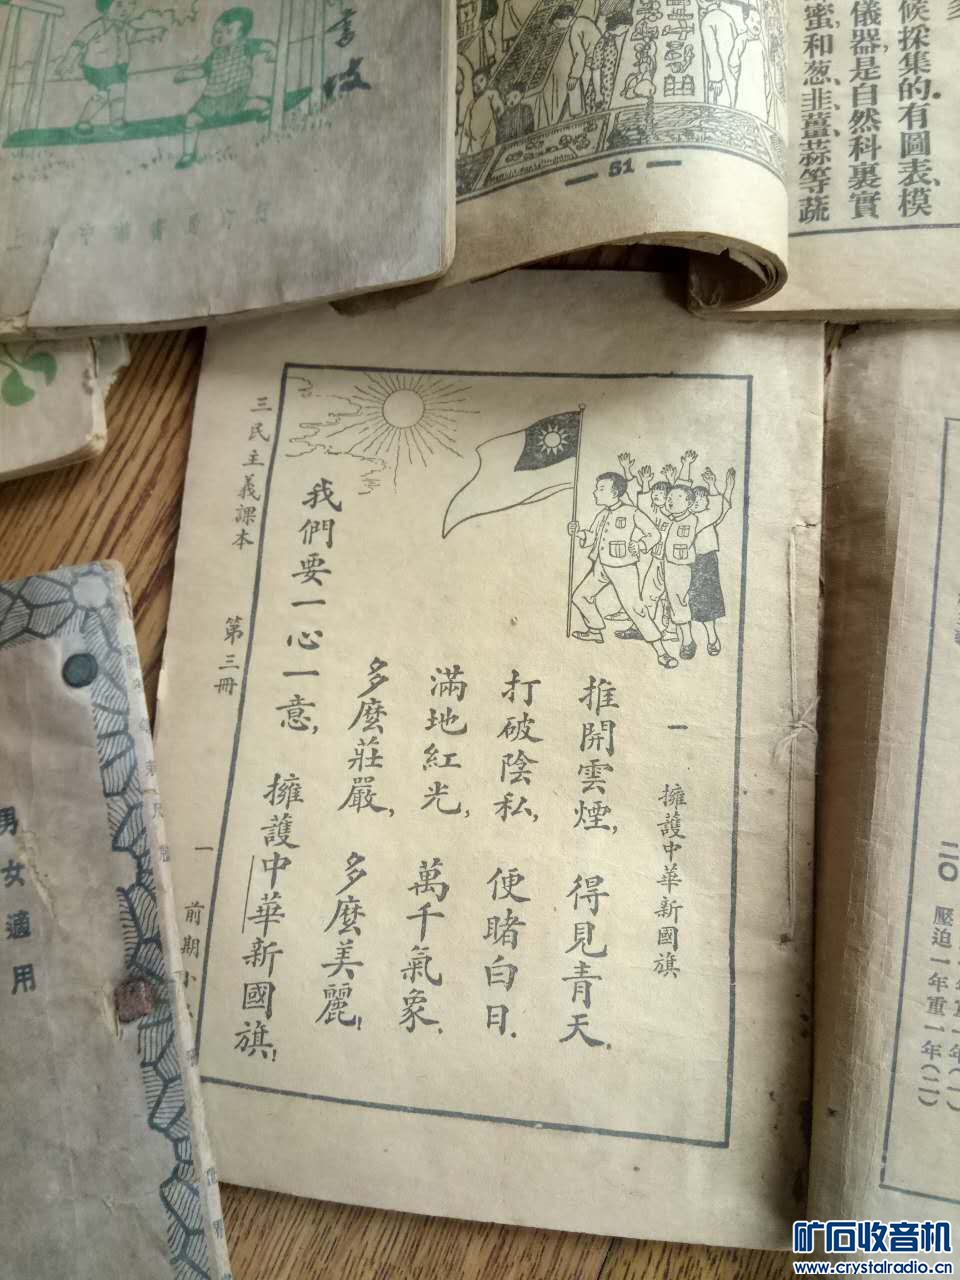 一 擁護中華新國旗
推開雲煙, 得見青天.
打破陰私, 便睹白日.
滿地紅光, 萬千氣象.
多麼莊嚴, 多麼美麗!
我們要一心一意, 擁護中華新國旗!
三民主義課本 第三冊 一 前期小
51
候採集的有圖表、模
儀器是自然科裏實
蜜和葱、韭、薑、蒜等蔬
二〇 壓迫一年重一年(二)
男女適用
矿石收音机
www.crystalradio.cn